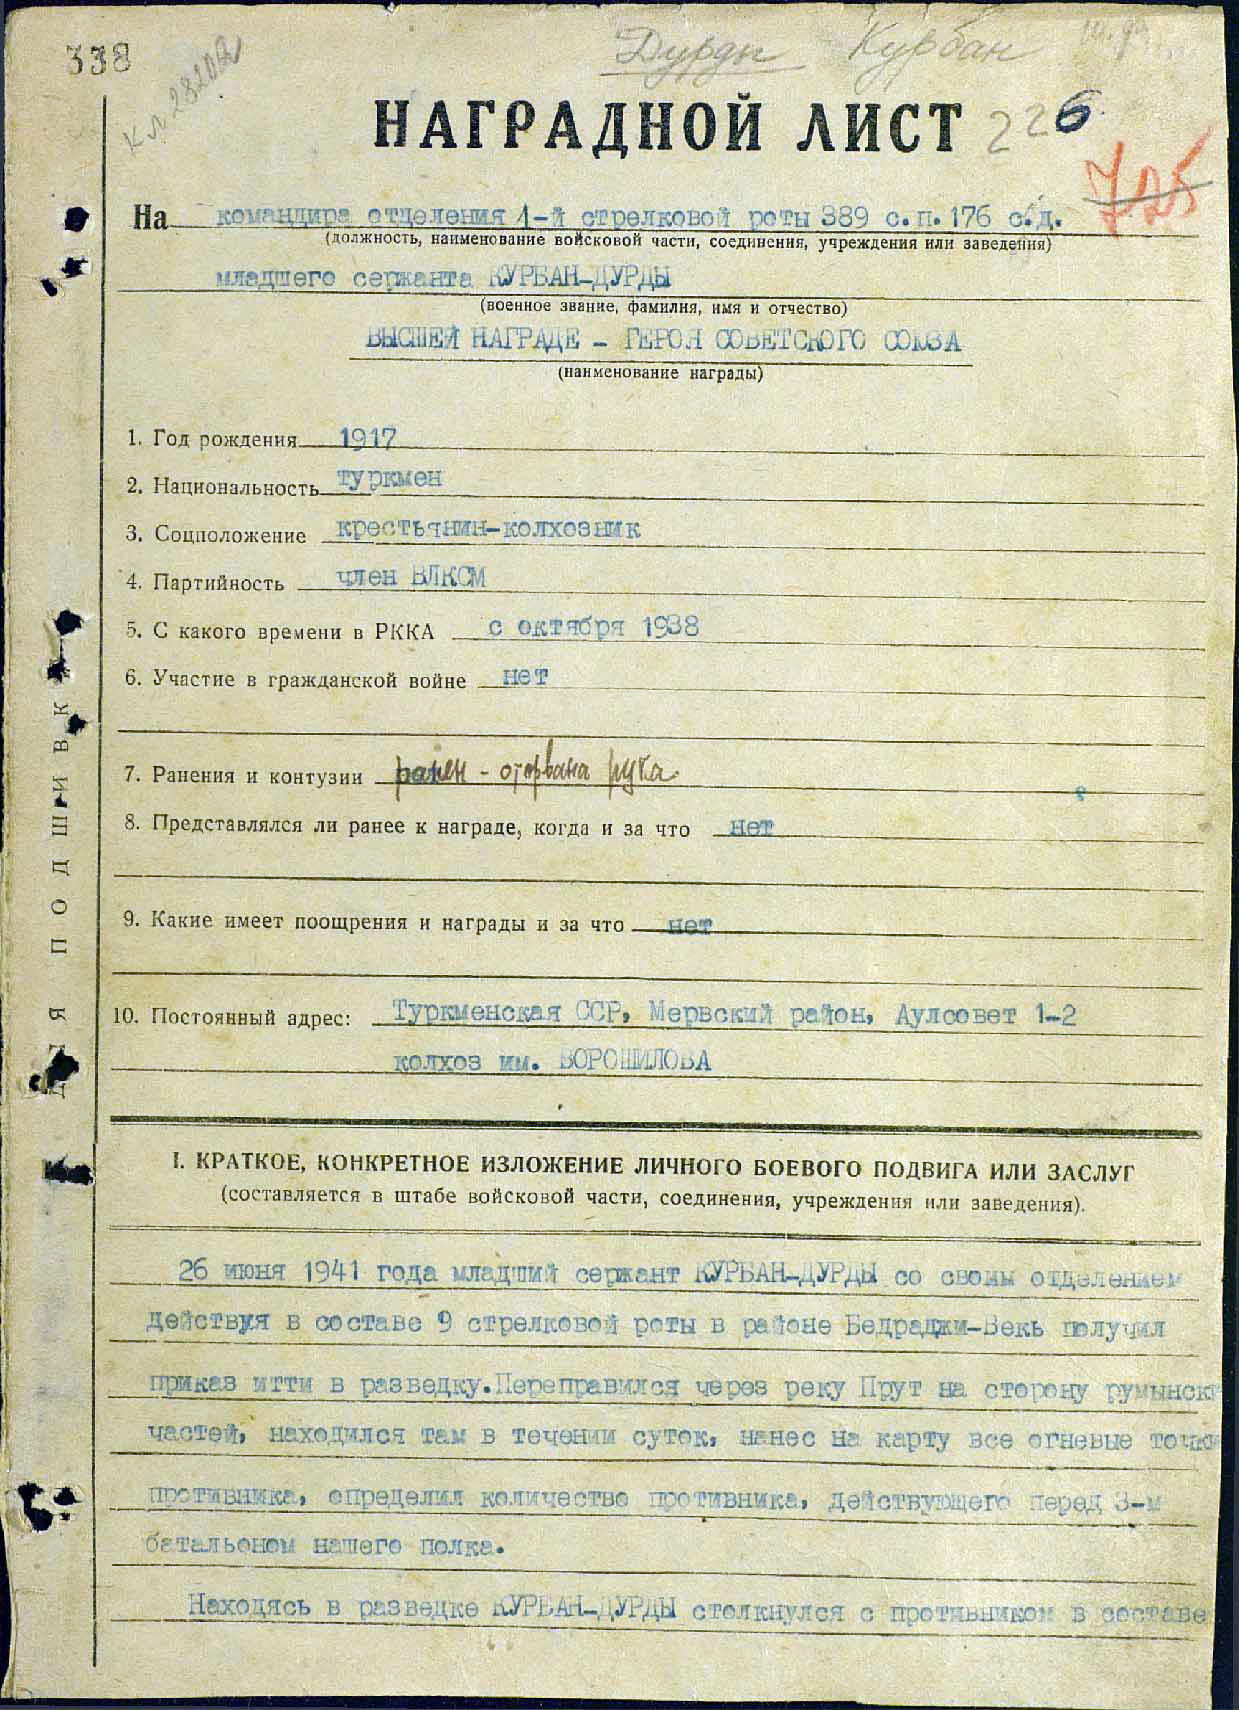 338
Дурды Курбан
кл 28202
НАГРАДНОЙ ЛИСТ 226
725
На командира отделения 1-й стрелковой роты 389 с.п. 176 с.д.
(должность, наименование войсковой части, соединения, учреждения или заведения)
младшего сержанта КУРБАН-ДУРДЫ
(военное звание, фамилия, имя и отчество)
ВЫСШЕЙ НАГРАДЕ - ГЕРОЯ СОВЕТСКОГО СОЮЗА
(наименование награды)
1. Год рождения 1917
2. Национальность туркмен
3. Соцположение крестьянин-колхозник
4. Партийность член ВЛКСМ
5. С какого времени в РККА с октября 1938
6. Участие в гражданской войне нет
7. Ранения и контузии ранен - оторвана рука
8. Представлялся ли ранее к награде, когда и за что нет
9. Какие имеет поощрения и награды и за что нет
10. Постоянный адрес: Туркменская ССР, Мервский район, Аулсовет 1-2
колхоз им. ВОРОШИЛОВА
ДЛЯ ПОДШИВКИ
I. КРАТКОЕ, КОНКРЕТНОЕ ИЗЛОЖЕНИЕ ЛИЧНОГО БОЕВОГО ПОДВИГА ИЛИ ЗАСЛУГ
(составляется в штабе войсковой части, соединения, учреждения или заведения).
26 июня 1941 года младший сержант КУРБАН-ДУРДЫ со своим отделением
действуя в составе 9 стрелковой роты в районе Бедраджи-Векь получил
приказ итти в разведку. Переправился через реку Прут на сторону румынски
частей, находился там в течении суток, нанес на карту все огневые точки
противника, определил количество противника, действующего перед 3-м
батальоном нашего полка.
Находясь в разведке КУРБАН-ДУРДЫ столкнулся с противником в составе